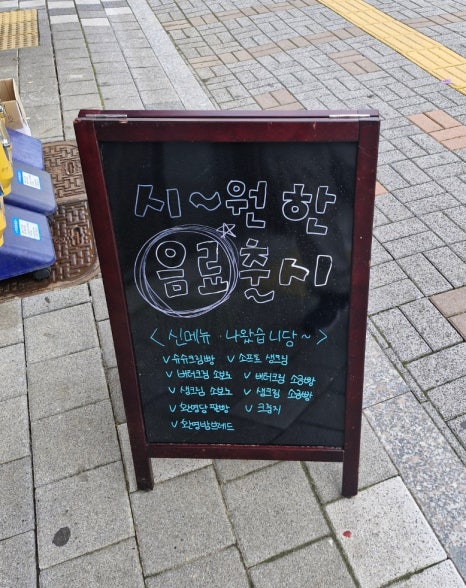 시~원 한
음료☆출시
<신메뉴 나왔습니당~>
∨슈슈크림빵 ∨소프트 생크림
∨버터크림 소보로 ∨버터크림 소금빵
∨생크림 소보로 ∨생크림 소금빵
∨왕명당 팥빵 ∨크룽지
∨왕밤브레드